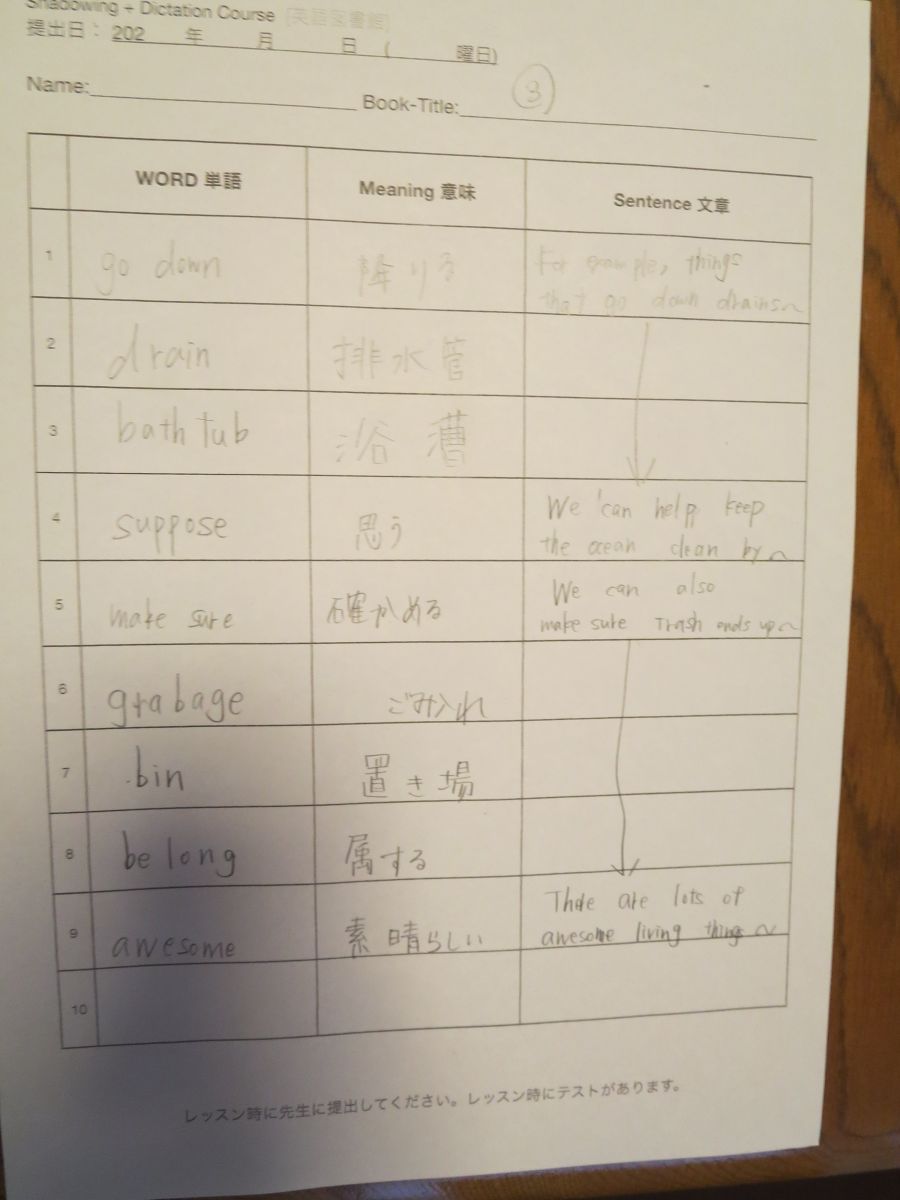 Shadowing + Dictation Course [英語図書館]
提出日： 202 年 月 日 ( 曜日)
Name: Book-Title: ③
WORD 単語 Meaning 意味 Sentence 文章
1 go down 降りる For example, things
that go down drains~
2 drain 排水管
3 bath tub 浴漕
4 suppose 思う We can help keep
the ocean clean by ~
5 make sure 確かめる We can also
make sure Trash ends up~
6 grabage ごみ入れ
7 bin 置き場
8 belong 属する
9 awesome 素晴らしい There are lots of
awesome living things ~
10
レッスン時に先生に提出してください。レッスン時にテストがあります。